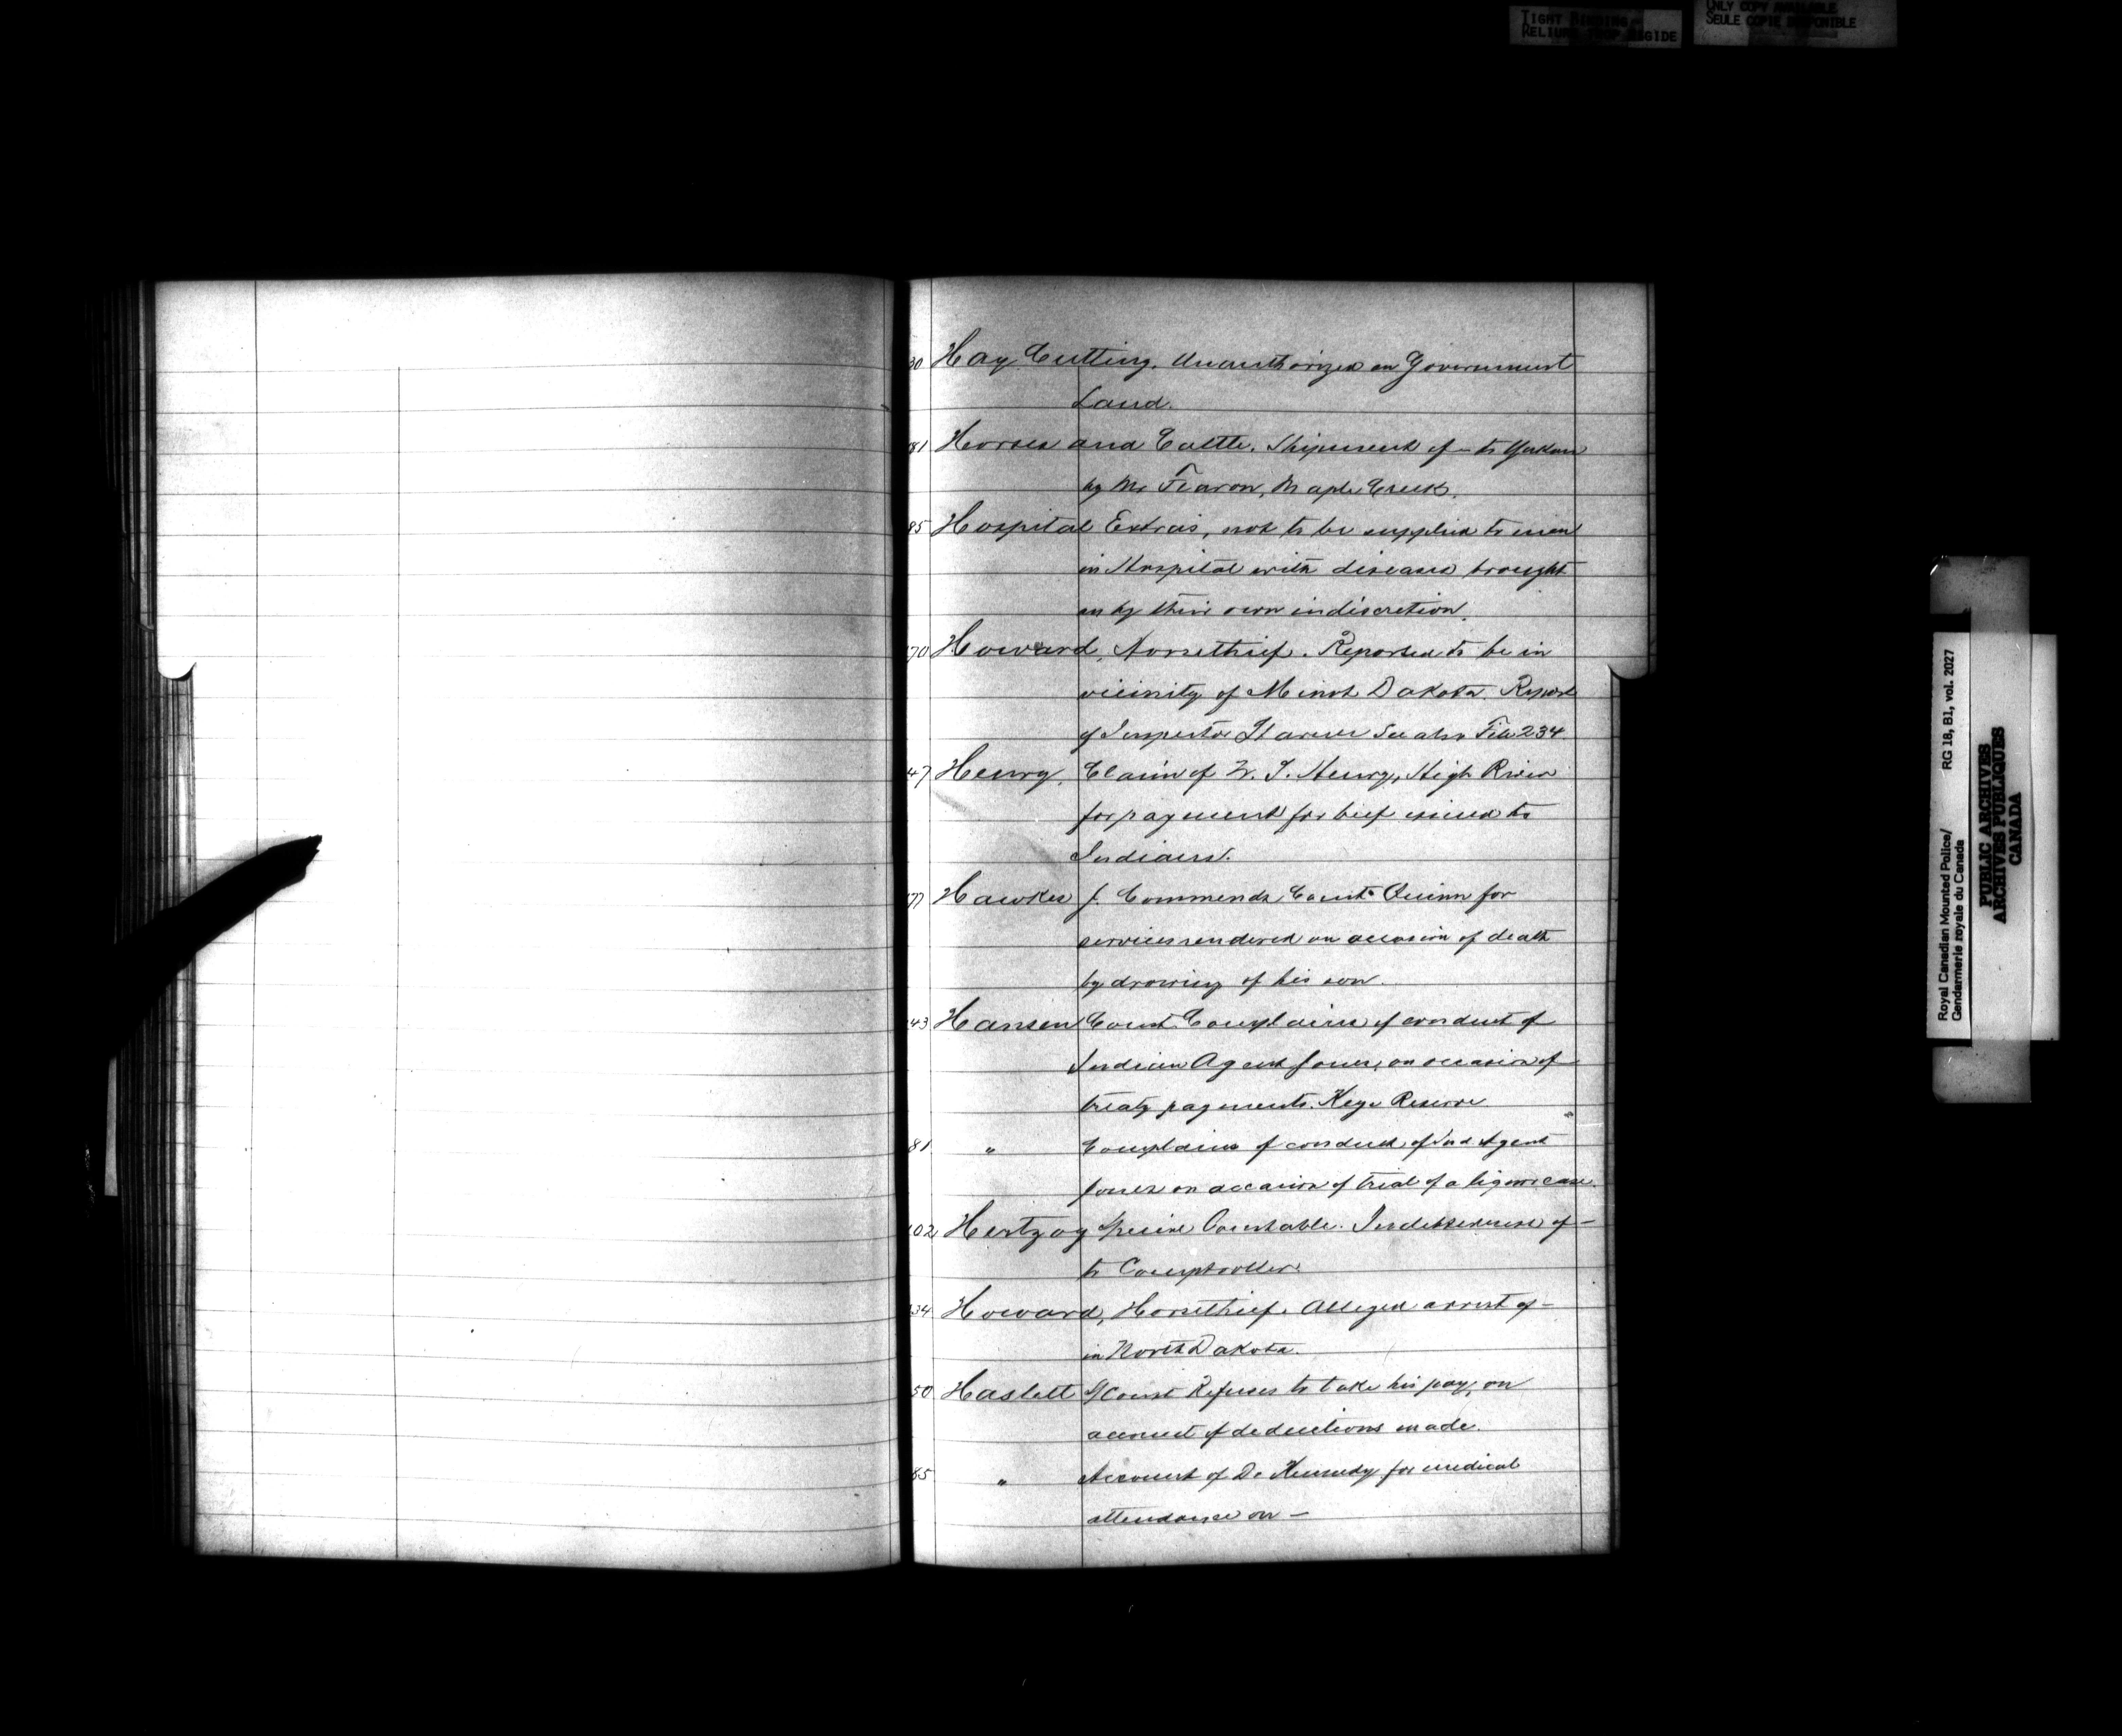 TIGHT BINDING
RELIURE TROP RIGIDE
ONLY COPY AVAILABLE
SEULE COPIE DISPONIBLE
30 Hay Cutting. Unauthorized on Government
Land.
81 Horses and Cattle. Shipment of — to Yukon
by Mr Fearon, Maple Creek.
85 Hospital Extras, not to be supplied to men
in Hospital with diseases brought
on by their own indiscretion.
70 Howard, Horsethief. Reported to be in
vicinity of Minot Dakota. Report
of Inspector see also File 234
47 Henry, Claim of W. T. Henry, High River
for payment for beef issued to
Indians.
77 Hawkes J. Commends Const. Quinn for
services rendered on occasion of death
by drowing of his son.
43 Hansen Const. Complains of conduct of
Indian Agent Jones, on occasion of
treaty payments. Keys Reserve
81 " Complains of conduct of Ind. Agent
Jones on occasion of trial of a liquor case.
102 Hertzog Special Constable. Indebtedness of —
to Comptroller.
34 Howard, Horsethief. Alleged arrest of —
in North Dakota.
50 Haslett S/Const Refuses to take his pay, on
account of deductions made.
85 " Account of Dr Kennedy for medical
attendance on —
Royal Canadian Mounted Police/
Gendarmerie royale du Canada
RG 18, B1, vol. 2027
PUBLIC ARCHIVES
ARCHIVES PUBLIQUES
CANADA